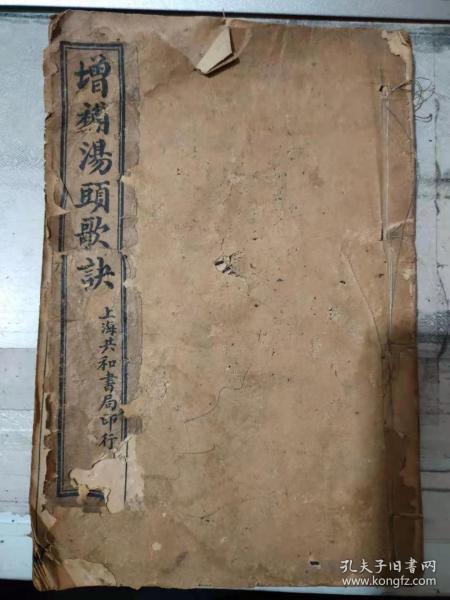 增補湯頭歌訣
上海共和書局印行
孔夫子旧书网
www.kongfz.com